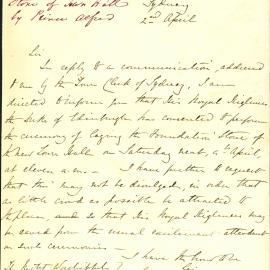 Stone of New Hall
by Prince Alfred
Sydney
2nd April
Sir
In reply to a communication, addressed
to me by the Town Clerk of Sydney, I am
directed to inform you that His Royal Highness
the Duke of Edinburgh has consented to perform
the ceremony of laying the Foundation Stone of
the new Town Hall on Saturday next, 4th April,
at eleven a.m. - I have further to request
that this may not be divulged, in order that
as little crowd as possible be attracted to
the place, and so that His Royal Highness may
be saved from the usual excitement attendant
on such ceremonies -
I have the honor to be